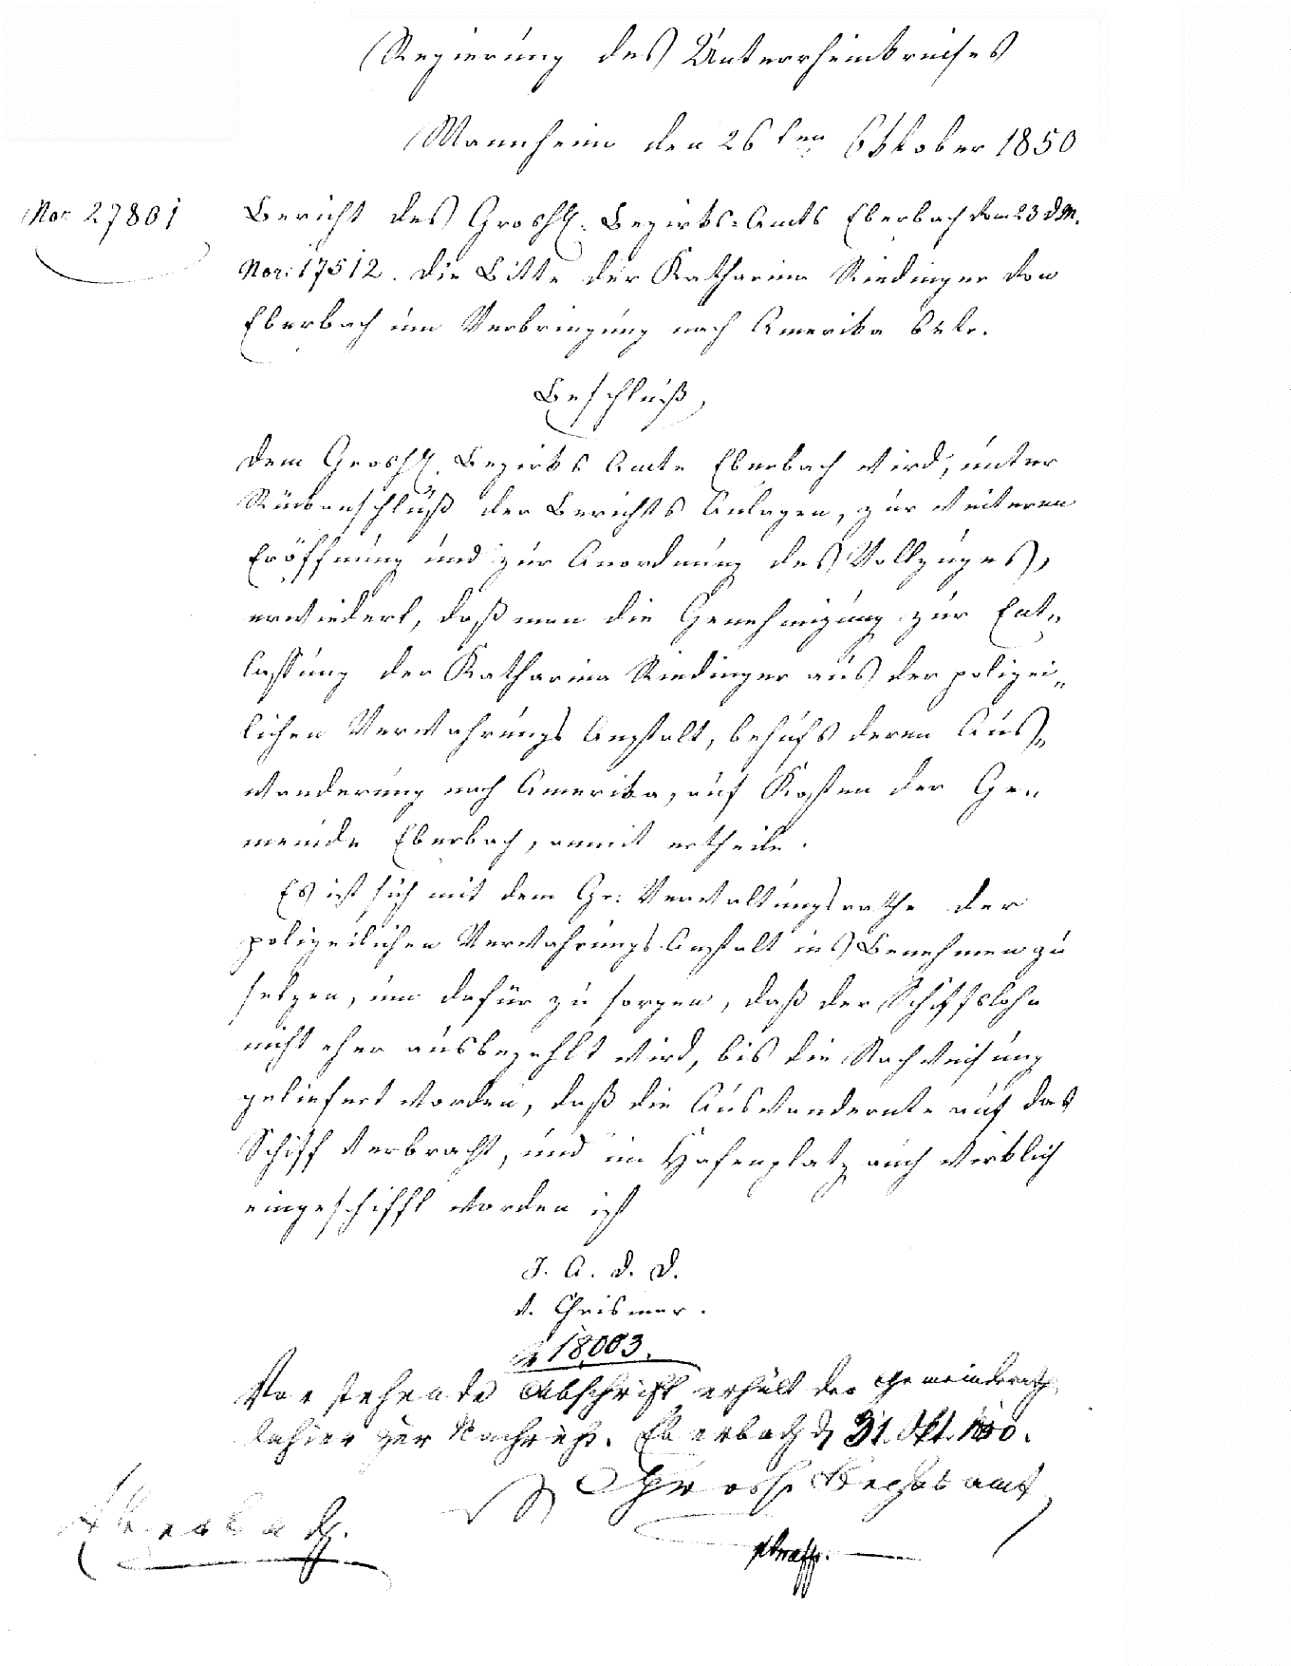 Regierung des Unterrheinkreises
Mannheim den 26ten Oktober 1850
Nor 27801
Bericht des Großh. Bezirks-Amts Eberbach vom 23 d. M.
Nor: 17512. die Bitte der Katharina Riedinger von
Eberbach um Verbringung nach Amerika betr.
Beschluß,
Dem Großh. Bezirks Amte Eberbach wird, unter
Rückanschluß der Berichts Anlagen, zur weiteren
Eröffnung und zur Anordnung des Vollzuges,
erwiedert, daß man die Genehmigung zur Ent„
lassung der Katharina Riedinger aus der polizei„
lichen Verwahrungs Anstalt, behufs deren Aus„
wanderung nach Amerika, auf Kosten der Ge„
meinde Eberbach, anmit ertheile.
Es ist sich mit dem Gr: Verwaltungsrathe der
polizeilichen Verwahrungs Anstalt ins Benehmen zu
setzen, um dafür zu sorgen, daß der Schiffslohn
nicht eher ausbezahlt wird, bis die Nachweisung
geliefert worden, daß die Auswandernte auf das
Schiff verbracht, und im Hafenplatz auch wirklich
eingeschifft worden ist
J. A. d. D.
v. Chrismar.
18,003.
Vorstehende Abschrift erhält der Gemeinderath
dahier zur Nachricht. Eberbach d 31. Okt. 1850.
Großh. Bezirksamt
Eberbach.